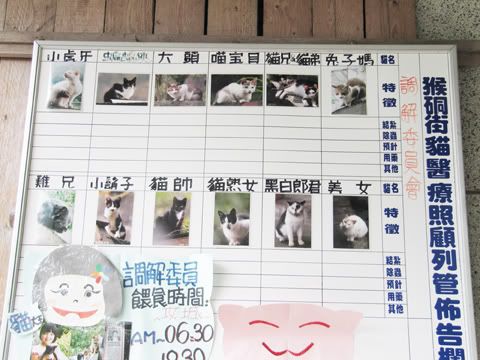 猴硐街貓醫療照顧列管佈告欄
調解委員會
小虎牙 大頭 喵宝貝 貓兄&貓弟 兔子媽 貓名
特徵
結紮
除蟲
預針
用藥
其他
雞兄 小鬍子 貓帥 貓熟女 黑白郎君 美女 貓名
特徵
結紮
除蟲
預針
用藥
其他
調解委員
餵食時間:
AM~06:30
貓大王